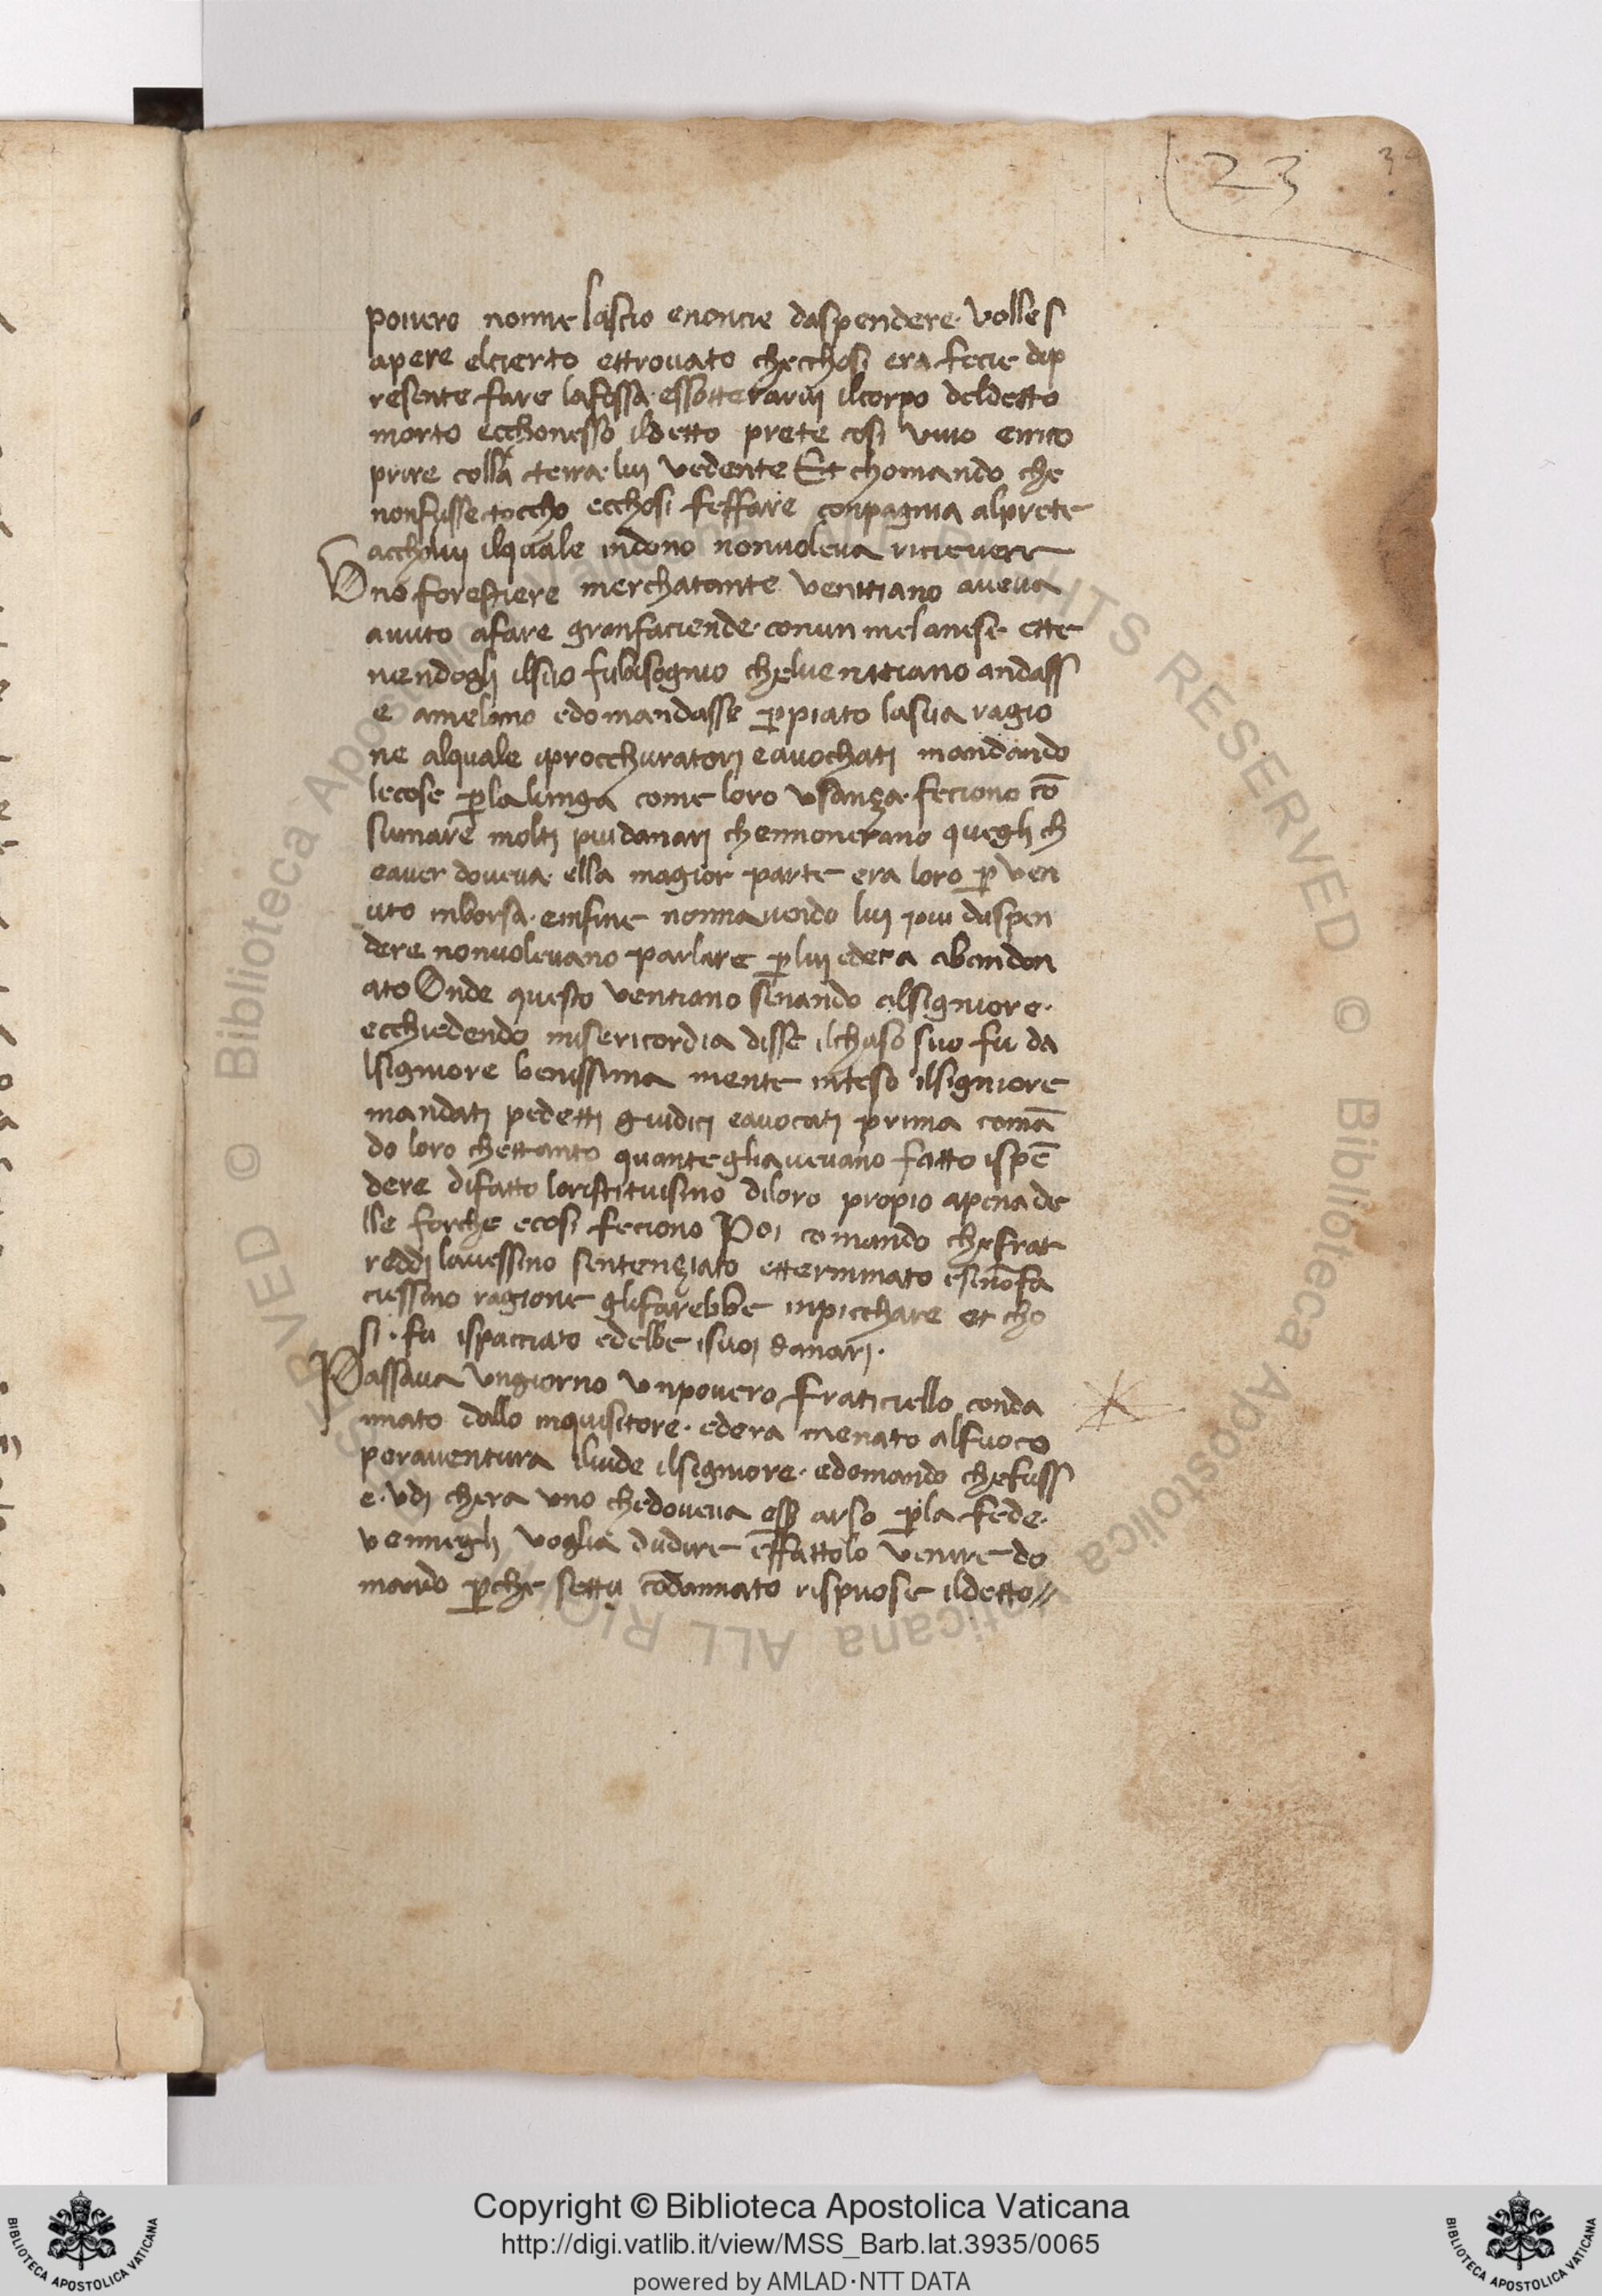 23
povero nonne lascio enoncie daspendere · volle s
apere elcierto ettrovato checchosi era fecie dip
resente fare lafossa · essotterarui ilcorpo deldetto
morto ecchonesso ildetto prete cosi vivo
prire colla terra · lui vedente Et chomando che
nonfusse toccho ecchosi feffare conpagnia alprete
acchului ilquale indono nonvoleva ricievere
Uno forestiere merchatante venitiano aveva
avuto afare granfaciende · conun melanese · ette
nendogli ilsuo fubisognio chelvenitiano andass
e amelano edomandasse p̄piato lasua ragio
ne alquale iprocchuratori eavochati mandando
lecose p̄lalunga come loro usanza · feciono cō
sumare molti piudanari chennonerano quegli ch
eaver doveva · ella magior parte era loro p̄ven
uto inborsa · einfine nonnavendo lui piu daspen
dere nonvolevano parlare p̄lui edera abandon
ato Onde questo venitiano senando alsigniore ·
ecchiedendo misericordia disse ilchaso suo fu da
lsigniore benissima mente inteso ilsigniore
mandati pedetti giudici eavocati prima comā
do loro chettanto quanteglavevano fatto ispē
dere difatto loristituisino diloro propio apenade
lle forche ecosi feciono Poi comando chefrat
reddi lavessino sentenziato etterminato esinōfa
ciessino ragione glifarebbe inpicchare et cho
si · fu ispacciato edebbe isuoi danari ·
Passava ungiorno unpovero fraticiello conda
nnato dallo inquisitore · edera menato alfuoco
peraventura ilvide ilsigniore · edomando chefuss
e · udi chera uno chedoveva esser arso p̄la fede ·
vennegli voglia dudire effattolo venire do
mando p̄che settu cōdannato rispuose ildetto//
© Biblioteca Apostolica Vaticana ALL RIGHTS RESERVED © Biblioteca Apostolica Vaticana ALL RIGHTS RESERVED
Copyright © Biblioteca Apostolica Vaticana
http://digi.vatlib.it/view/MSS_Barb.lat.3935/0065
powered by AMLAD·NTT DATA
BIBLIOTECA APOSTOLICA VATICANA
BIBLIOTECA APOSTOLICA VATICANA